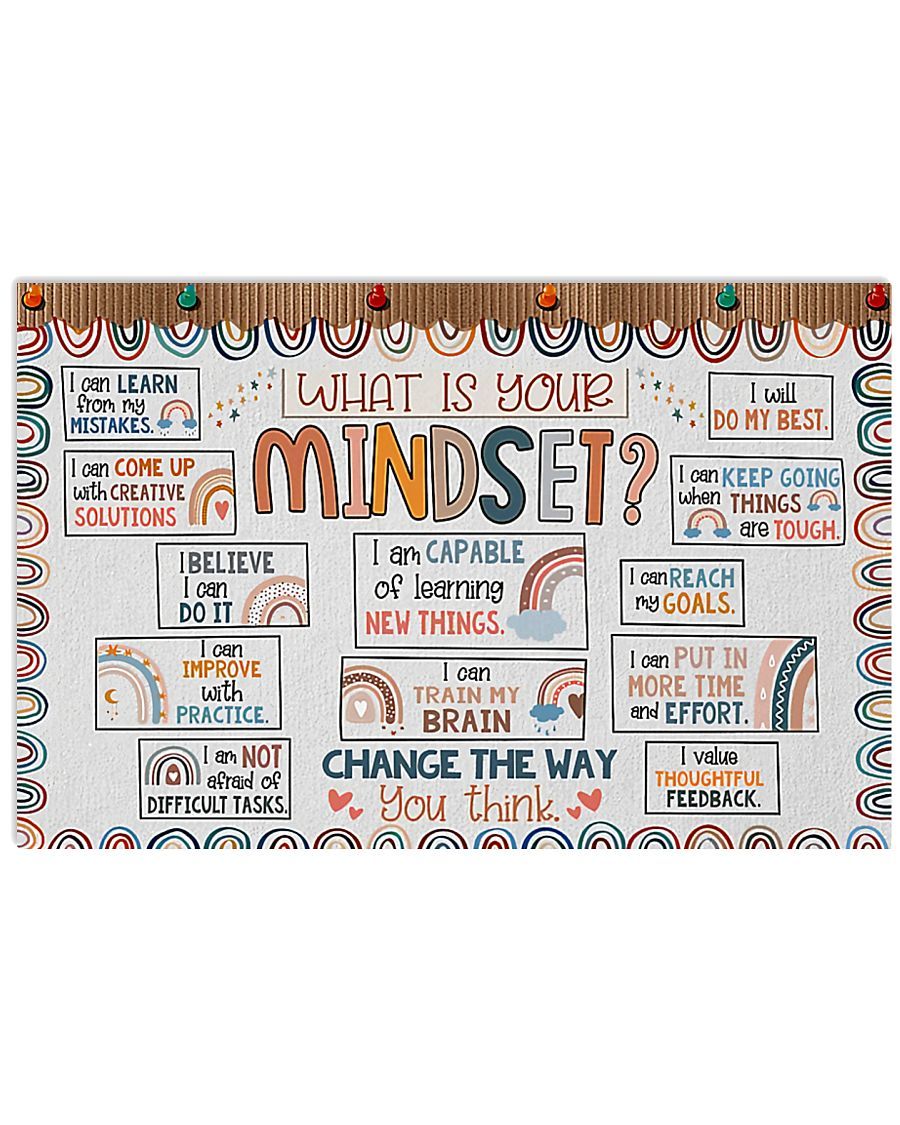 WHAT IS YOUR
MINDSET?
I can LEARN
from my
MISTAKES.
I can COME UP
with CREATIVE
SOLUTIONS
I BELIEVE
I can
DO IT
I can
IMPROVE
with
PRACTICE.
I am NOT
afraid of
DIFFICULT TASKS.
I am CAPABLE
of learning
NEW THINGS.
I can
TRAIN MY
BRAIN
CHANGE THE WAY
You think.
I will
DO MY BEST.
I can KEEP GOING
when THINGS
are TOUGH.
I can REACH
my GOALS.
I can PUT IN
MORE TIME
and EFFORT.
I value
THOUGHTFUL
FEEDBACK.